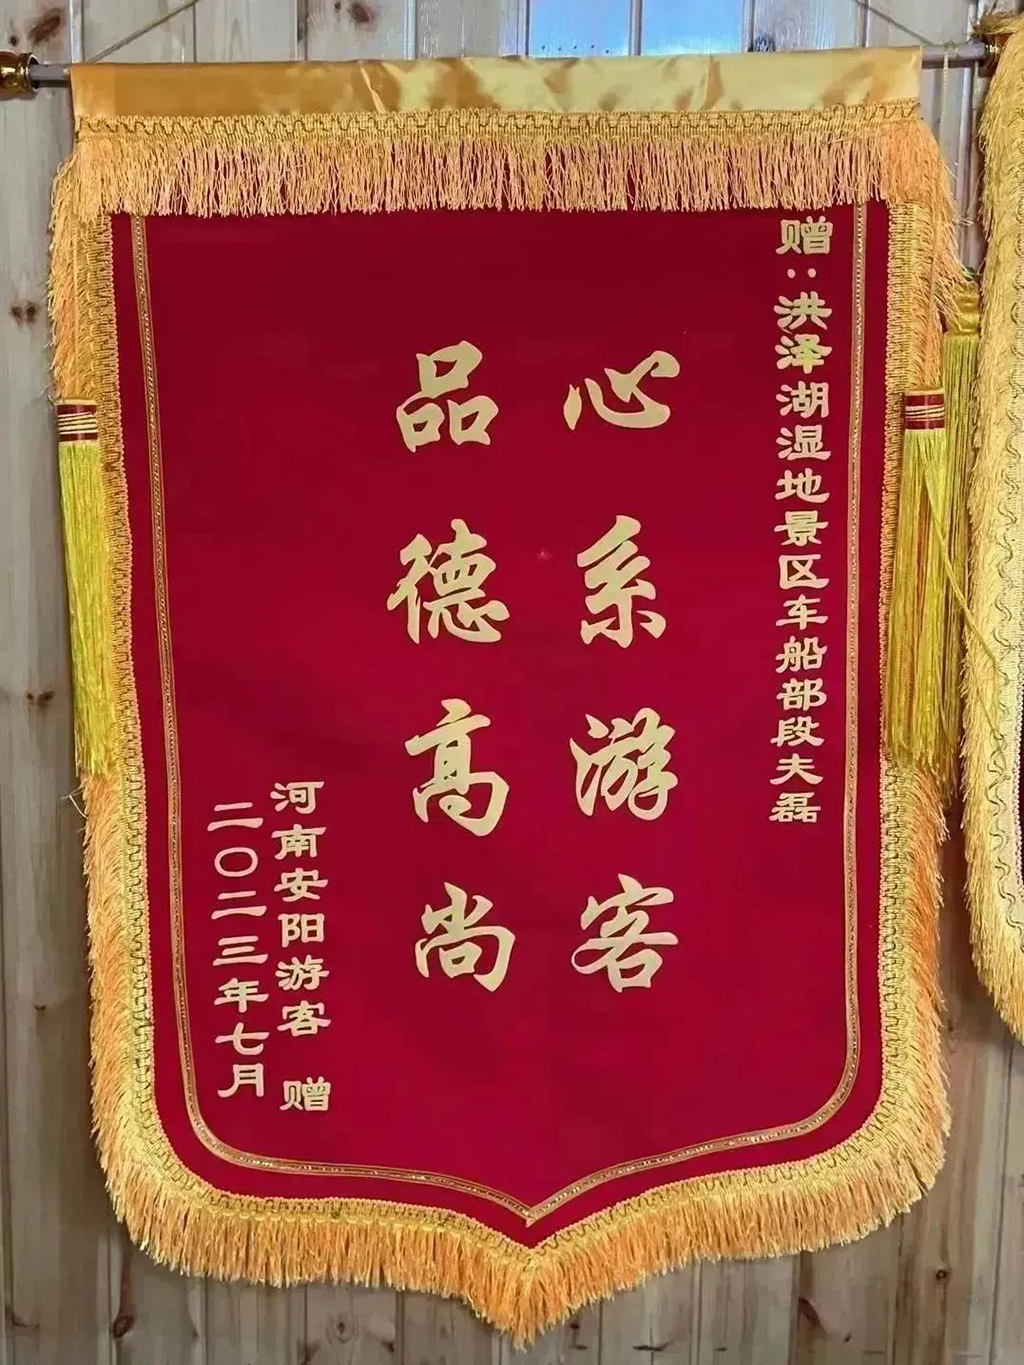 赠：洪泽湖湿地景区车船部段夫磊
心系游客
品德高尚
河南安阳游客 赠
二〇二三年七月